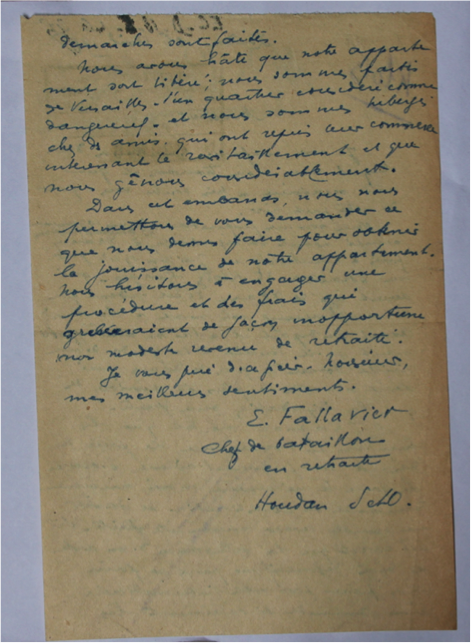 demarches sont faites.
Nous avons hâte que notre apparte
ment soit libéré; nous sommes partis
de Versailles - d'un quartier considéré comme
dangereux - et nous sommes hébergés
chez des amis qui ont repris leur commerce
intéressant le ravitaillement et que
nous gênons considérablement.
Dans cet embarras, nous nous
permettons de vous demander ce
que nous devons faire pour obtenir
la jouissance de notre appartement.
Nous hésitons à engager une
procédure et des frais qui
grèveraient de façon inopportune
mon modeste revenu de retraité.
Je vous prie d'agréer, Monsieur,
mes meilleurs sentiments.
E. Fallavier
Chef de bataillon
en retraite
Houdan S et O.